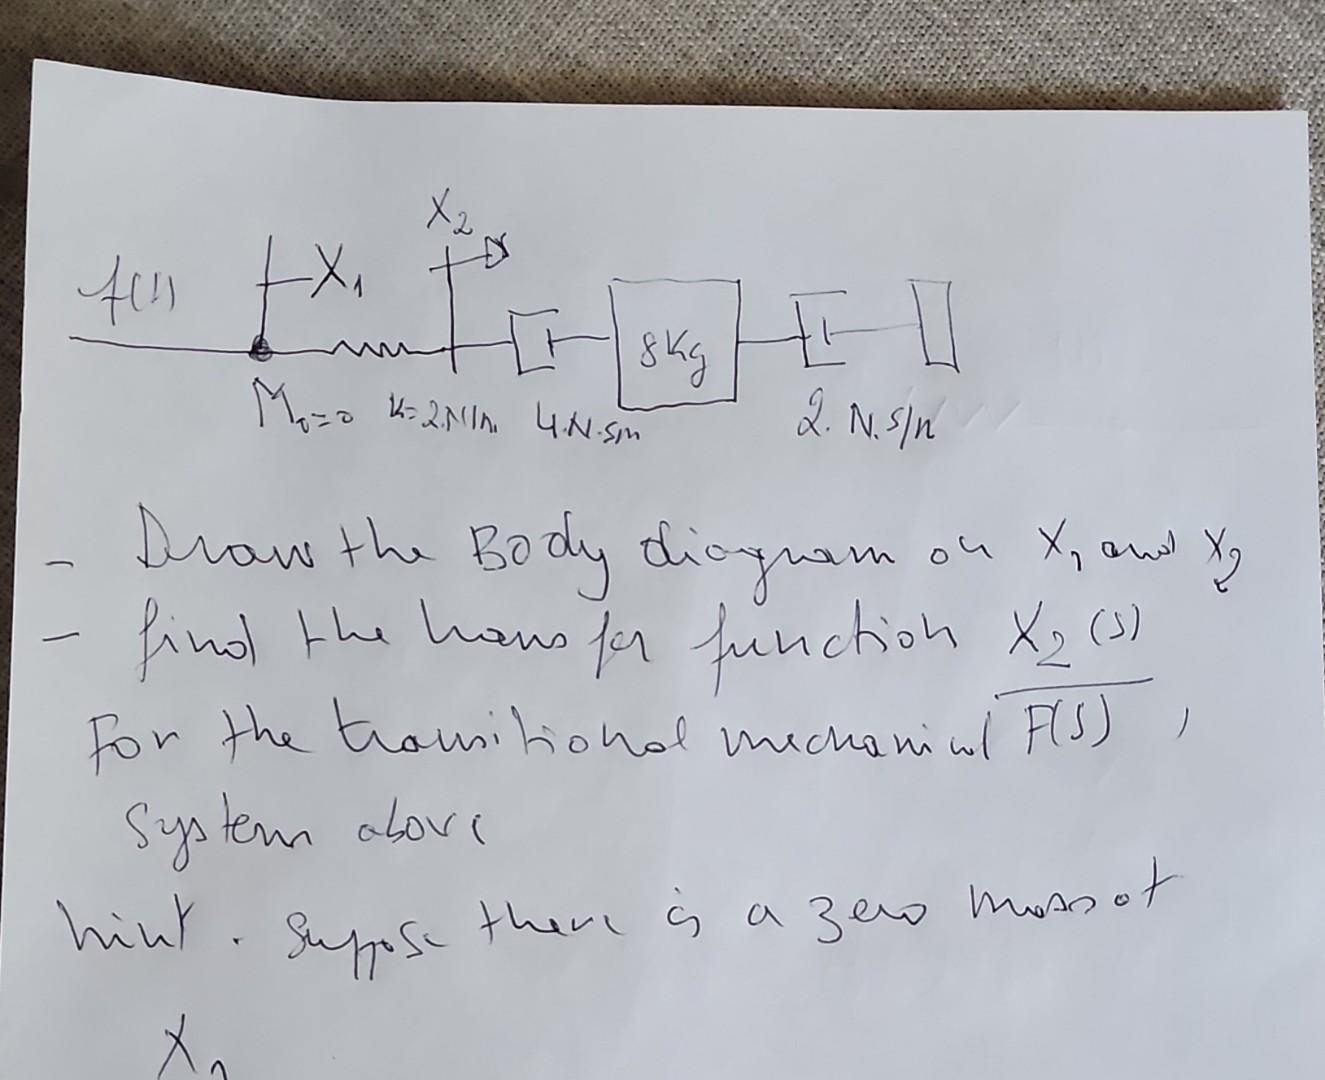 X₂
f(t) X₁
8Kg
M₀=0 K=2N/m 4.N.s/m 2. N.s/m
- Draw the Body diagram on X₁ and X₂
- find the transfer function X₂(s)
For the transitional mechanical F(s) ,
System above
hint . Suppose there is a zero mass at
X₂